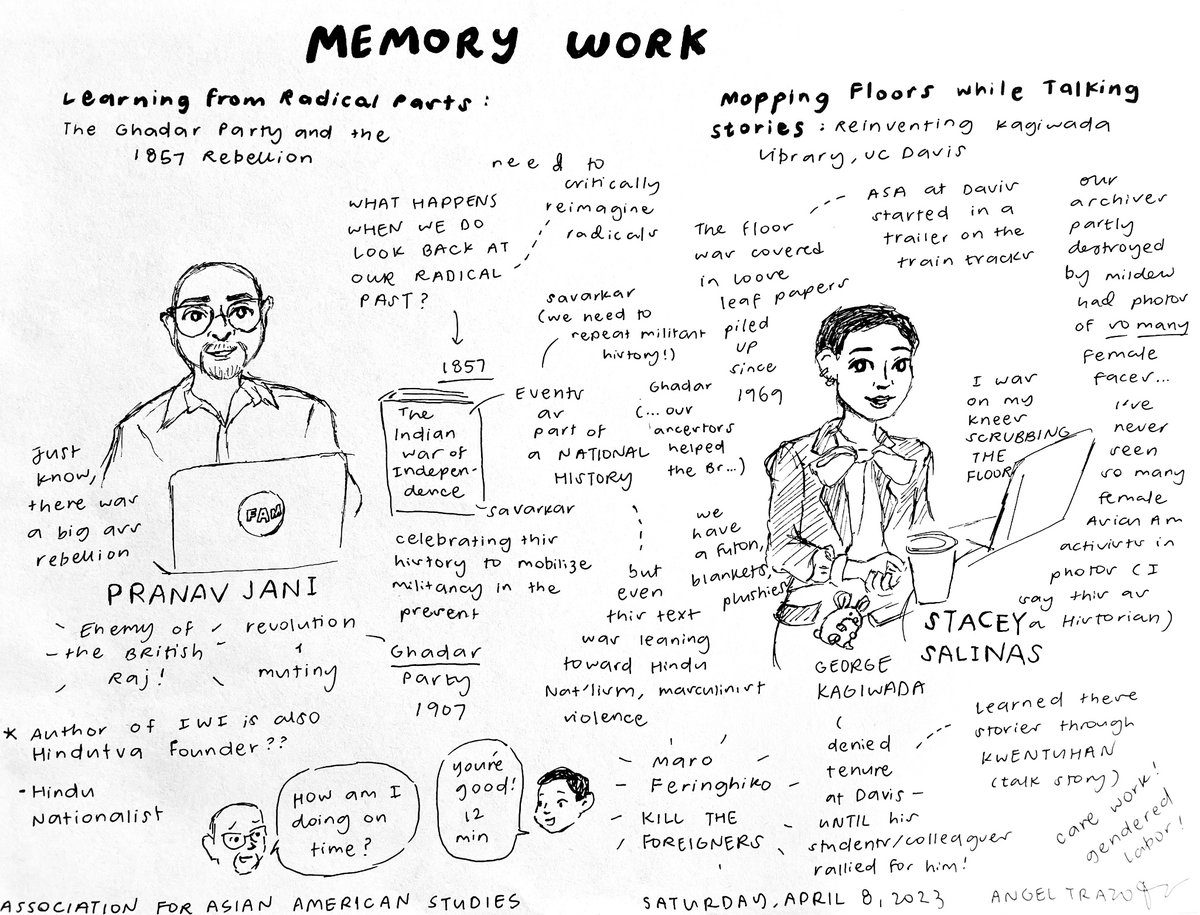 MEMORY WORK
Learning from Radical Parts:
The Ghadar Party and the
1857 Rebellion
WHAT HAPPENS
WHEN WE DO
LOOK BACK AT
OUR RADICAL
PAST?
need to
critically
reimagine
radicals
1857
The
Indian
war of
Indepen-
dence
savarkar
(we need to
repeat militant
history!)
Events
as
part of
a NATIONAL
HISTORY
Ghadar
(... our
ancestors
helped
the Br...)
savarkar
celebrating this
history to mobilize
militancy in the
present
but
even
this text
was leaning
toward Hindu
Nat'lism, masculinist
violence
Just
know,
there was
a big ass
rebellion
FAM
PRANAV JANI
Enemy of
the British
Raj!
revolution
&
mutiny
Ghadar
Party
1907
* Author of IWI is also
Hindutva Founder??
• Hindu
Nationalist
HOW am I
doing on
time?
you're
good!
12
min
maro
Feringhiko
KILL THE
FOREIGNERS
Mopping Floors while Talking
stories: Reinventing Kagiwada
Library, UC Davis
The floor
was covered
in loose
leaf papers
piled
up
since
1969
ASA at Davis
started in a
trailer on the
train tracks
our
archives
partly
destroyed
by mildew
had photos
of so many
female
faces...
I've
never
seen
so many
female
Asian Am
activists in
photos (I
say this as
a Historian)
I was
on my
knees
SCRUBBING
THE
FLOOR
we
have
a futon,
blankets,
plushies
STACEY
SALINAS
GEORGE
KAGIWADA
denied
tenure
at Davis –
UNTIL his
students/colleagues
rallied for him!
Learned these
stories through
KWENTUHAN
(talk story)
care work!
gendered
labor!
ASSOCIATION FOR ASIAN AMERICAN STUDIES
SATURDAY, APRIL 8, 2023
ANGEL TRAZO